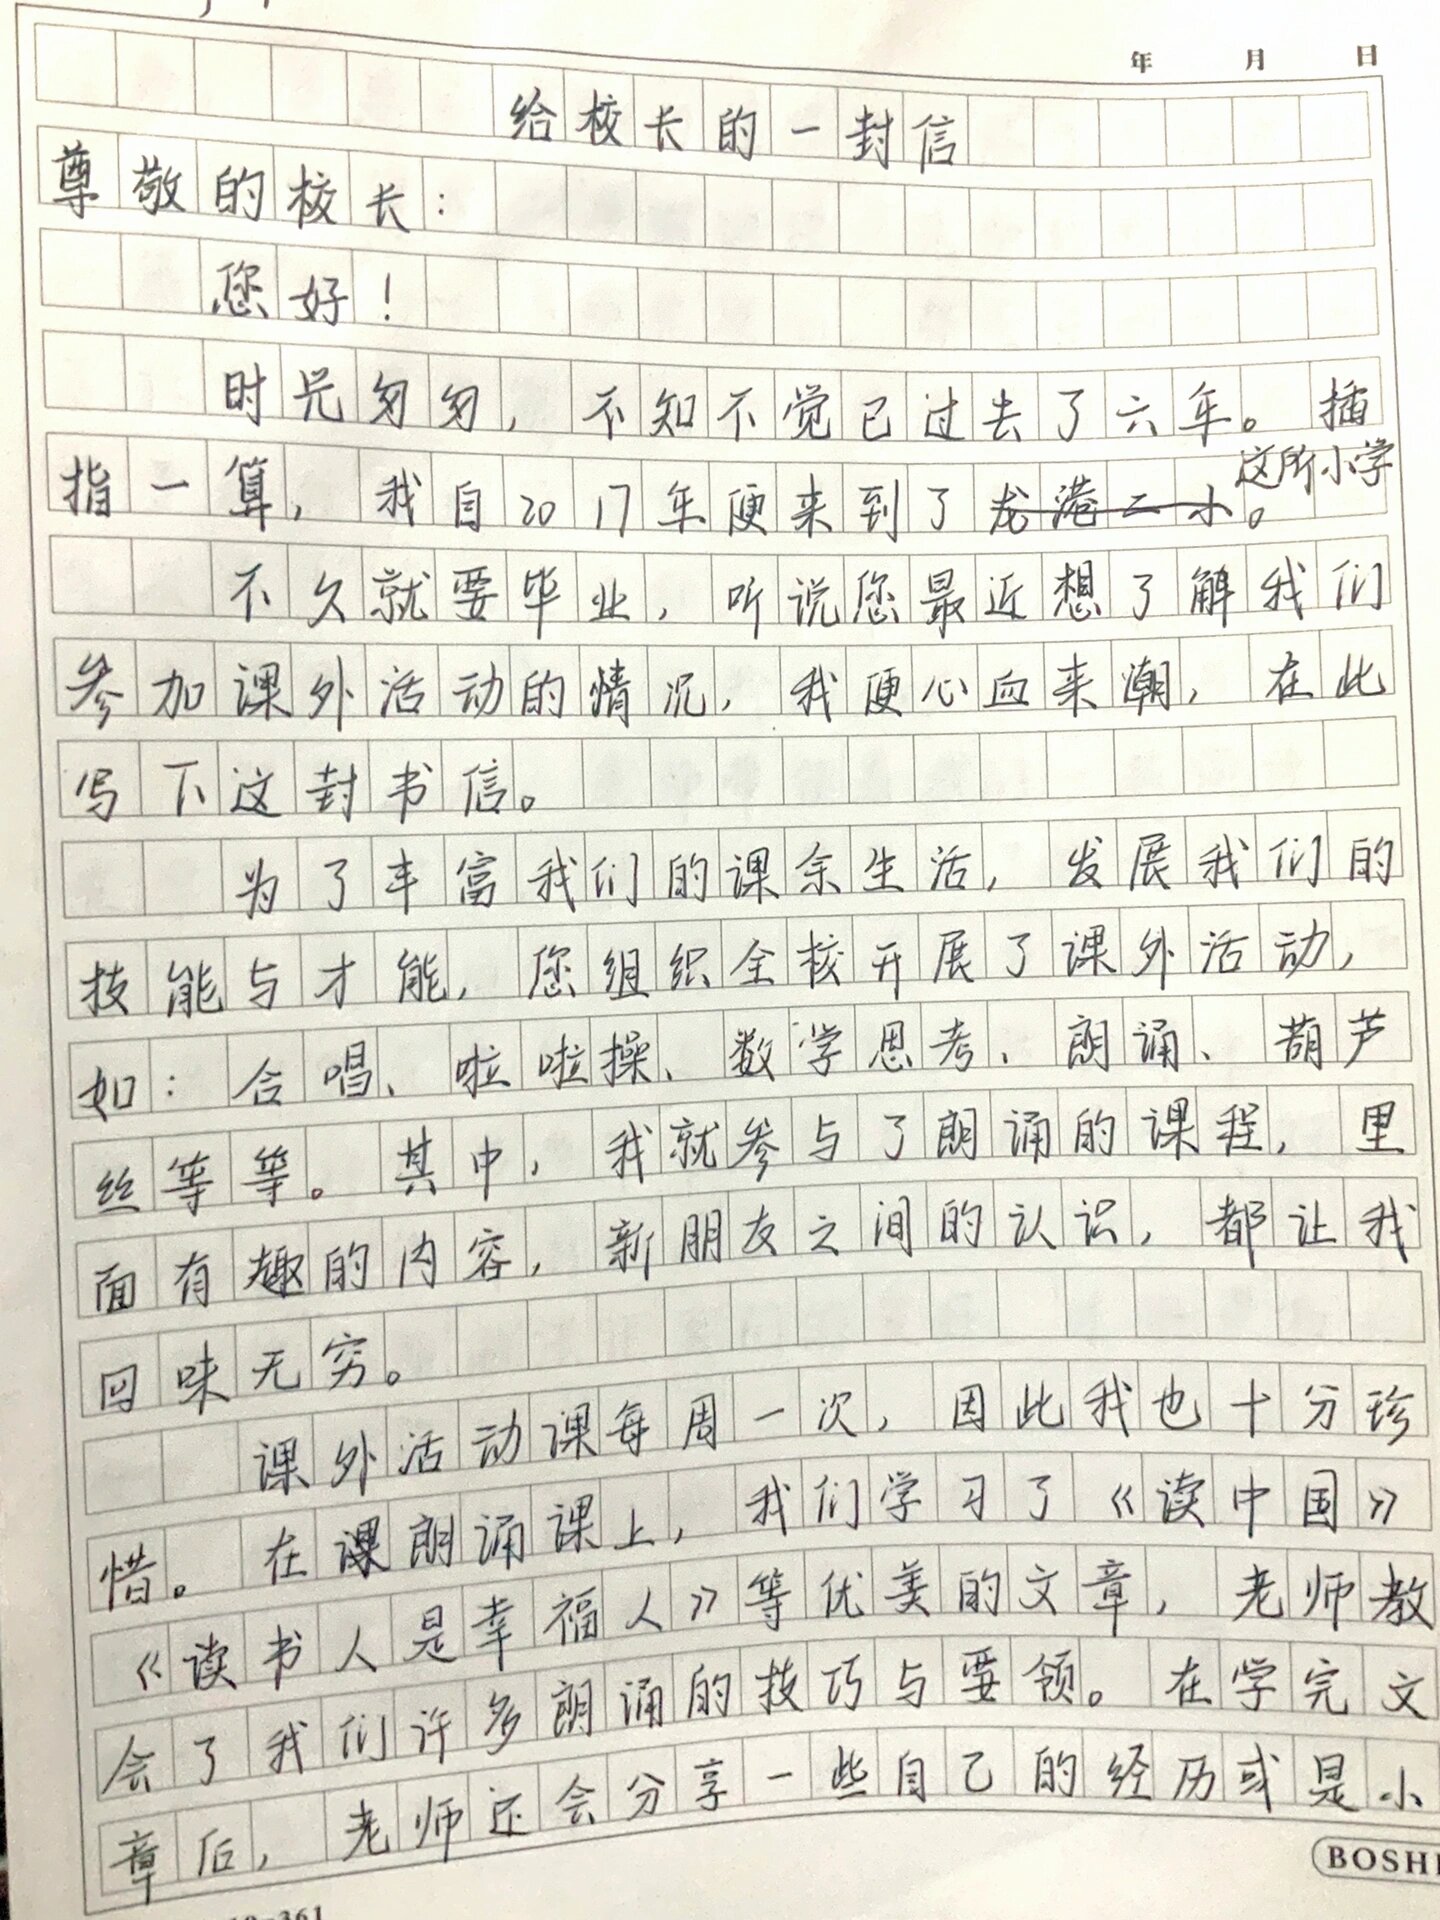 年 月 日
给校长的一封信
尊敬的校长：
您好！
时光匆匆，不知不觉已过去了六年。插
指一算，我自2017年便来到了龙港二小。这所小学
不久就要毕业，听说您最近想了解我们
参加课外活动的情况，我便心血来潮，在此
写下这封书信。
为了丰富我们的课余生活，发展我们的
技能与才能，您组织全校开展了课外活动，
如：合唱、啦啦操、数学思考、朗诵、葫芦
丝等等。其中，我就参与了朗诵的课程，里
面有趣的内容，新朋友之间的认识，都让我
回味无穷。
课外活动课每周一次，因此我也十分珍
惜。在课朗诵课上，我们学习了《读中国》
《读书人是幸福人》等优美的文章，老师教
会了我们许多朗诵的技巧与要领。在学完文
章后，老师还会分享一些自己的经历或是小
BOSHI
-361